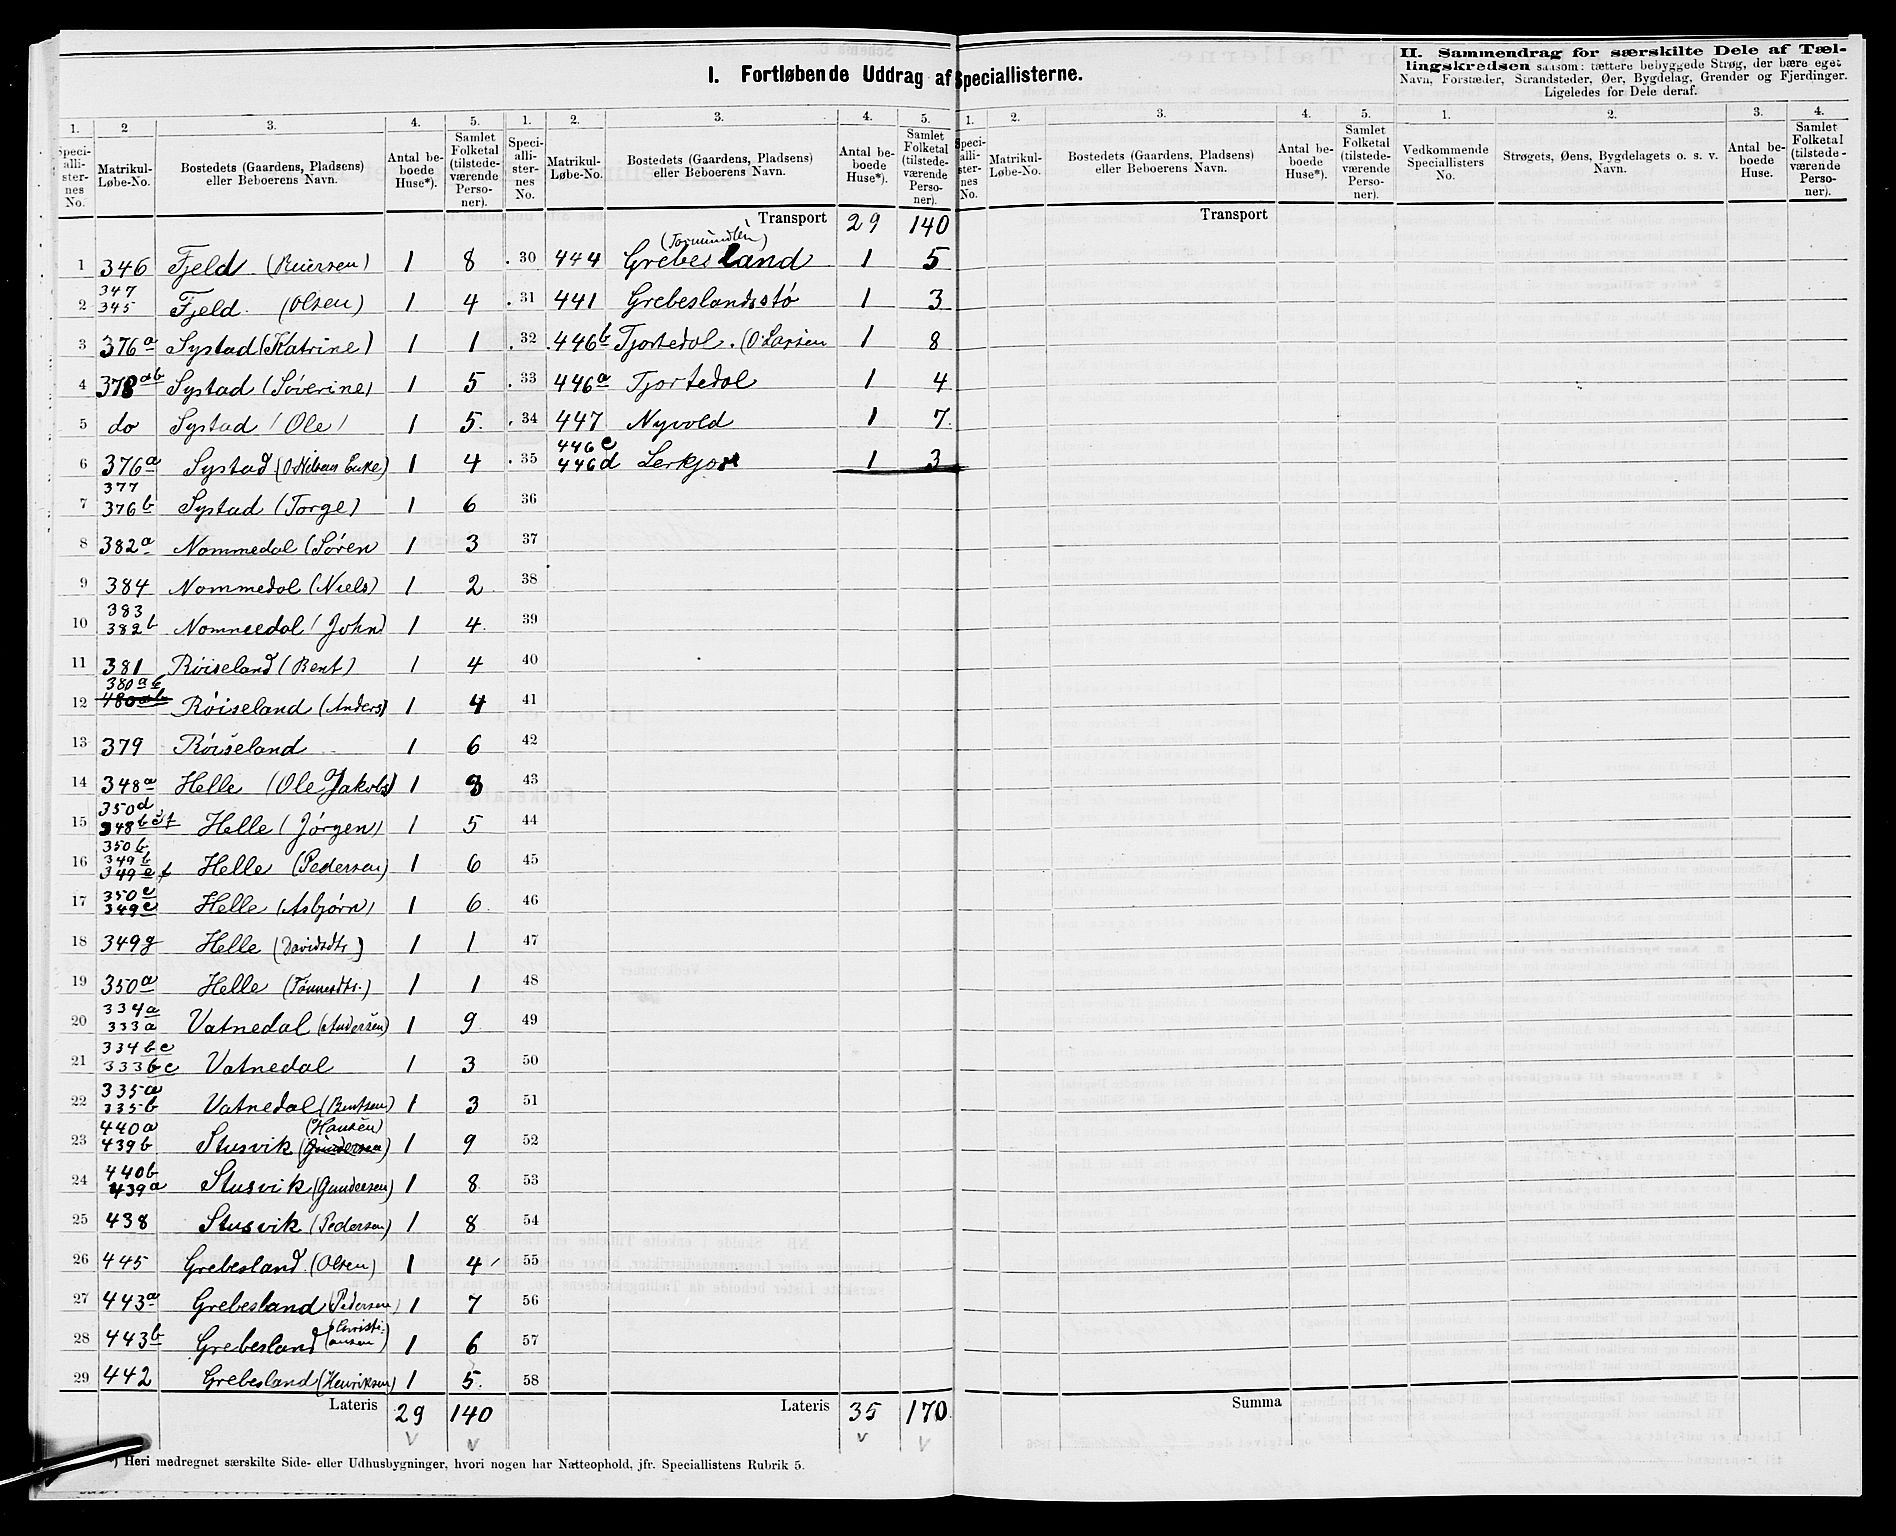 I. Fortløbende Uddrag af Speciallisterne.
II. Sammendrag for særskilte Dele af Tæl-
lingskredsen saasom: tættere bebyggede Strøg, der bære eget
Navn, Forstæder, Strandsteder, Øer, Bygdelag, Grender og Fjerdinger.
Ligeledes for Dele deraf.
1. 2 3. 4. 5. 1. 2. 3. 4. 5. 1. 2. 3. 4. 5. 1. 2. 3. 4.
Speci-alli-ster-nes No. Matrikul-Løbe-No. Bostedets (Gaardens, Pladsens) eller Beboerens Navn. Antal be-boede Huse*). Samlet Folketal (tilstede-værende Perso-ner).
Speci-alli-ster-nes No. Matrikul-Løbe-No. Bostedets (Gaardens, Pladsens) eller Beboerens Navn. Antal be-boede Huse*). Samlet Folketal (tilstede-værende Perso-ner).
Speci-alli-ster-nes No. Matrikul-Løbe-No. Bostedets (Gaardens, Pladsens) eller Beboerens Navn. Antal be-boede Huse*). Samlet Folketal (tilstede-værende Perso-ner).
Vedkommende Speciallisters No. Strøgets, Øens, Bygdelagets o. s. v. Navn. Antal be-boede Huse. Samlet Folketal (tilstede-værende Perso-ner).
1 346 Fjeld (Reiersen) 1 8
2 347 345 Fjeld. (Olsen) 1 4
3 376a Systad (Katrine) 1 1
4 378ab Systad (Söverine) 1 5
5 do Systad (Ole) 1 5.
6 376a Systad (O Nilsens Enke) 1 4
7 377 376b Systad (Torge) 1 6
8 382a Nommedal (Sören 1 3
9 384 Nommedal (Niels) 1 2
10 383 382b Nommedal (John) 1 4
11 381 Röiseland (Bent) 1 4
12 380ab 480ab Röiseland (Anders) 1 4
13 379 Röiseland 1 6
14 348a Helle (Ole Jakobs) 1 8
15 350d 348bcf Helle (Jörgen) 1 5
16 350b 349b 349e f Helle (Pedersen) 1 6
17 350c 349c Helle (Asbjörn) 1 6
18 349g Helle (Davidsdtr.) 1 1
19 350a Helle (Tönnesdtr.) 1 1
20 334a 333a Vatnedal (Andersen) 1 9
21 334bc 333bc Vatnedal 1 3
22 335a 335b Vatnedal (Bentsen) 1 3
23 440a 439b Stusvik (Hansen) (Gundersen) 1 9
24 440b 439a Stusvik (Gundersen) 1 8
25 438 Stusvik (Pedersen) 1 8
26 445 Grebesland. (Olsen) 1 4
27 443a Grebesland (Pedersen) 1 7
28 443b Grebesland (Christiansen) 1 6
29 442 Grebesland (Henriksen) 1 5.
Lateris 29 140
Transport 29 140
30 444 Grebesland 1 5
31 441 Grebeslandsstö 1 3
32 446b Tjortedal. (O. Larsen 1 8
33 446a Tjortedal 1 4
34 447 Nyvold 1 7
35 446c 446d Lerkjær 1 3
36
37
38
39
40
41
42
43
44
45
46
47
48
49
50
51
52
53
54
55
56
57
58
Lateris 35 170
Transport
Summa
*) Heri medregnet særskilte Side- eller Udhusbygninger, hvori nogen har Natteophold, jfr. Speciallistens Rubrik 5.